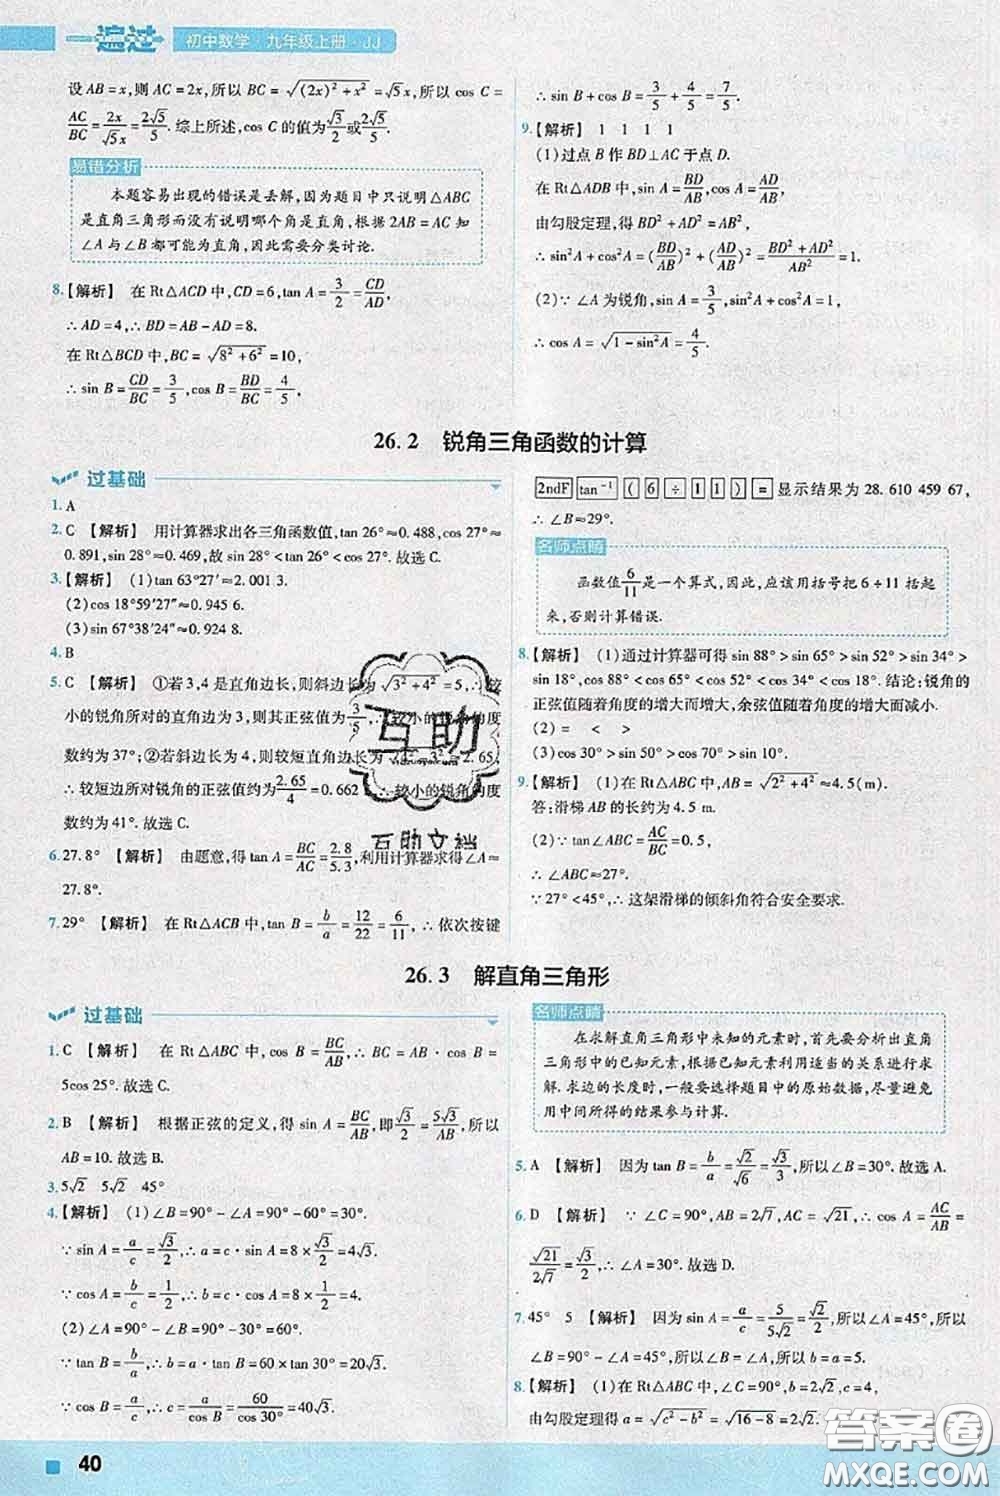 一遍过 初中数学·九年级上册·JJ
设AB=x,则AC=2x,所以BC=√((2x)²+x²)=√5x,所以cos C=
AC/BC=2x/√5x=2√5/5.综上所述,cos C的值为√3/2或2√5/5.
易错分析
本题容易出现的错误是丢解,因为题目中只说明△ABC
是直角三角形而没有说明哪个角是直角,根据2AB=AC知
∠A与∠B都可能为直角,因此需要分类讨论.
8.【解析】 在Rt△ACD中,CD=6,tan A=3/2=CD/AD,
∴AD=4,∴BD=AB-AD=8.
在Rt△BCD中,BC=√(8²+6²)=10,
∴sin B=CD/BC=3/5,cos B=BD/BC=4/5,
∴sin B+cos B=3/5+4/5=7/5.
9.【解析】 1 1 1 1
(1)过点B作BD⊥AC于点D.
在Rt△ADB中,sin A=BD/AB,cos A=AD/AB,
由勾股定理,得BD²+AD²=AB²,
∴sin²A+cos²A=(BD/AB)²+(AD/AB)²=(BD²+AD²)/AB²=1.
(2)∵∠A为锐角,sin A=3/5,sin²A+cos²A=1,
∴cos A=√(1-sin²A)=4/5.
26.2 锐角三角函数的计算
过基础
1.A
2.C 【解析】 用计算器求出各三角函数值,tan 26°≈0.488,cos 27°≈
0.891,sin 28°≈0.469,故sin 28°<tan 26°<cos 27°.故选C.
3.【解析】 (1)tan 63°27′≈2.001 3.
(2)cos 18°59′27″≈0.945 6.
(3)sin 67°38′24″≈0.924 8.
4.B
5.C 【解析】 ①若3,4是直角边长,则斜边长为√(3²+4²)=5,∴较
小的锐角所对的直角边为3,则其正弦值为3/5,∴较小的锐角的度
数约为37°;②若斜边长为4,则较短直角边长为√(4²-3²)≈2.65,
∴较短边所对锐角的正弦值约为2.65/4=0.662 5,∴较小的锐角的度
数约为41°.故选C.
6.27.8° 【解析】 由题意,得tan A=BC/AC=2.8/5.3,利用计算器求得∠A≈
27.8°.
7.29° 【解析】 在Rt△ACB中,tan B=b/a=12/22=6/11,∴依次按键
2ndF tan⁻¹ ( 6 ÷ 1 1 ) = 显示结果为28.610 459 67,
∴∠B≈29°.
名师点睛
函数值6/11是一个算式,因此,应该用括号把6÷11括起
来,否则计算错误.
8.【解析】 (1)通过计算器可得sin 88°>sin 65°>sin 52°>sin 34°>
sin 18°,cos 88°<cos 65°<cos 52°<cos 34°<cos 18°.结论:锐角的
正弦值随着角度的增大而增大,余弦值随着角度的增大而减小.
(2)= < >
(3)cos 30°>sin 50°>cos 70°>sin 10°.
9.【解析】 (1)在Rt△ABC中,AB=√(2²+4²)≈4.5(m).
答:滑梯AB的长约为4.5 m.
(2)∵tan∠ABC=AC/BC=0.5,
∴∠ABC≈27°.
∵27°<45°,∴这架滑梯的倾斜角符合安全要求.
互助
互助文档
26.3 解直角三角形
过基础
1.C 【解析】 在Rt△ABC中,cos B=BC/AB,∴BC=AB·cos B=
5cos 25°.故选C.
2.B 【解析】 根据正弦的定义,得sin A=BC/AB,即√3/2=5√3/AB,所以
AB=10.故选B.
3.5√2 5√2 45°
4.【解析】 (1)∠B=90°-∠A=90°-60°=30°.
∵sin A=a/c=√3/2,∴a=c·sin A=8×√3/2=4√3.
∵cos A=b/c=1/2,∴b=c·cos A=8×1/2=4.
(2)∠A=90°-∠B=90°-30°=60°.
∵tan B=b/a,∴b=a·tan B=60×tan 30°=20√3.
∵cos B=a/c,∴c=a/cos B=60/cos 30°=40√3.
名师点睛
在求解直角三角形中未知的元素时,首先要分析出直角
三角形中的已知元素,根据已知元素利用适当的关系进行求
解.求边的长度时,一般要选择题目中的原始数据,尽量避免
用中间所得的结果参与计算.
5.A 【解析】 因为tan B=b/a=√2/√6=√3/3,所以∠B=30°.故选A.
6.D 【解析】 ∵∠C=90°,AB=2√7,AC=√21,∴cos A=AC/AB=
√21/2√7=√3/2,∴∠A=30°.故选D.
7.45° 5 【解析】 因为sin A=a/c=5/5√2=√2/2,所以∠A=45°,所以
∠B=90°-∠A=45°,所以∠A=∠B,所以b=a=5.
8.【解析】 (1)在Rt△ABC中,∠C=90°,b=2√2,c=4,
由勾股定理得a=√(c²-b²)=√(16-8)=2√2,
40
答案圈
MXQE.COM